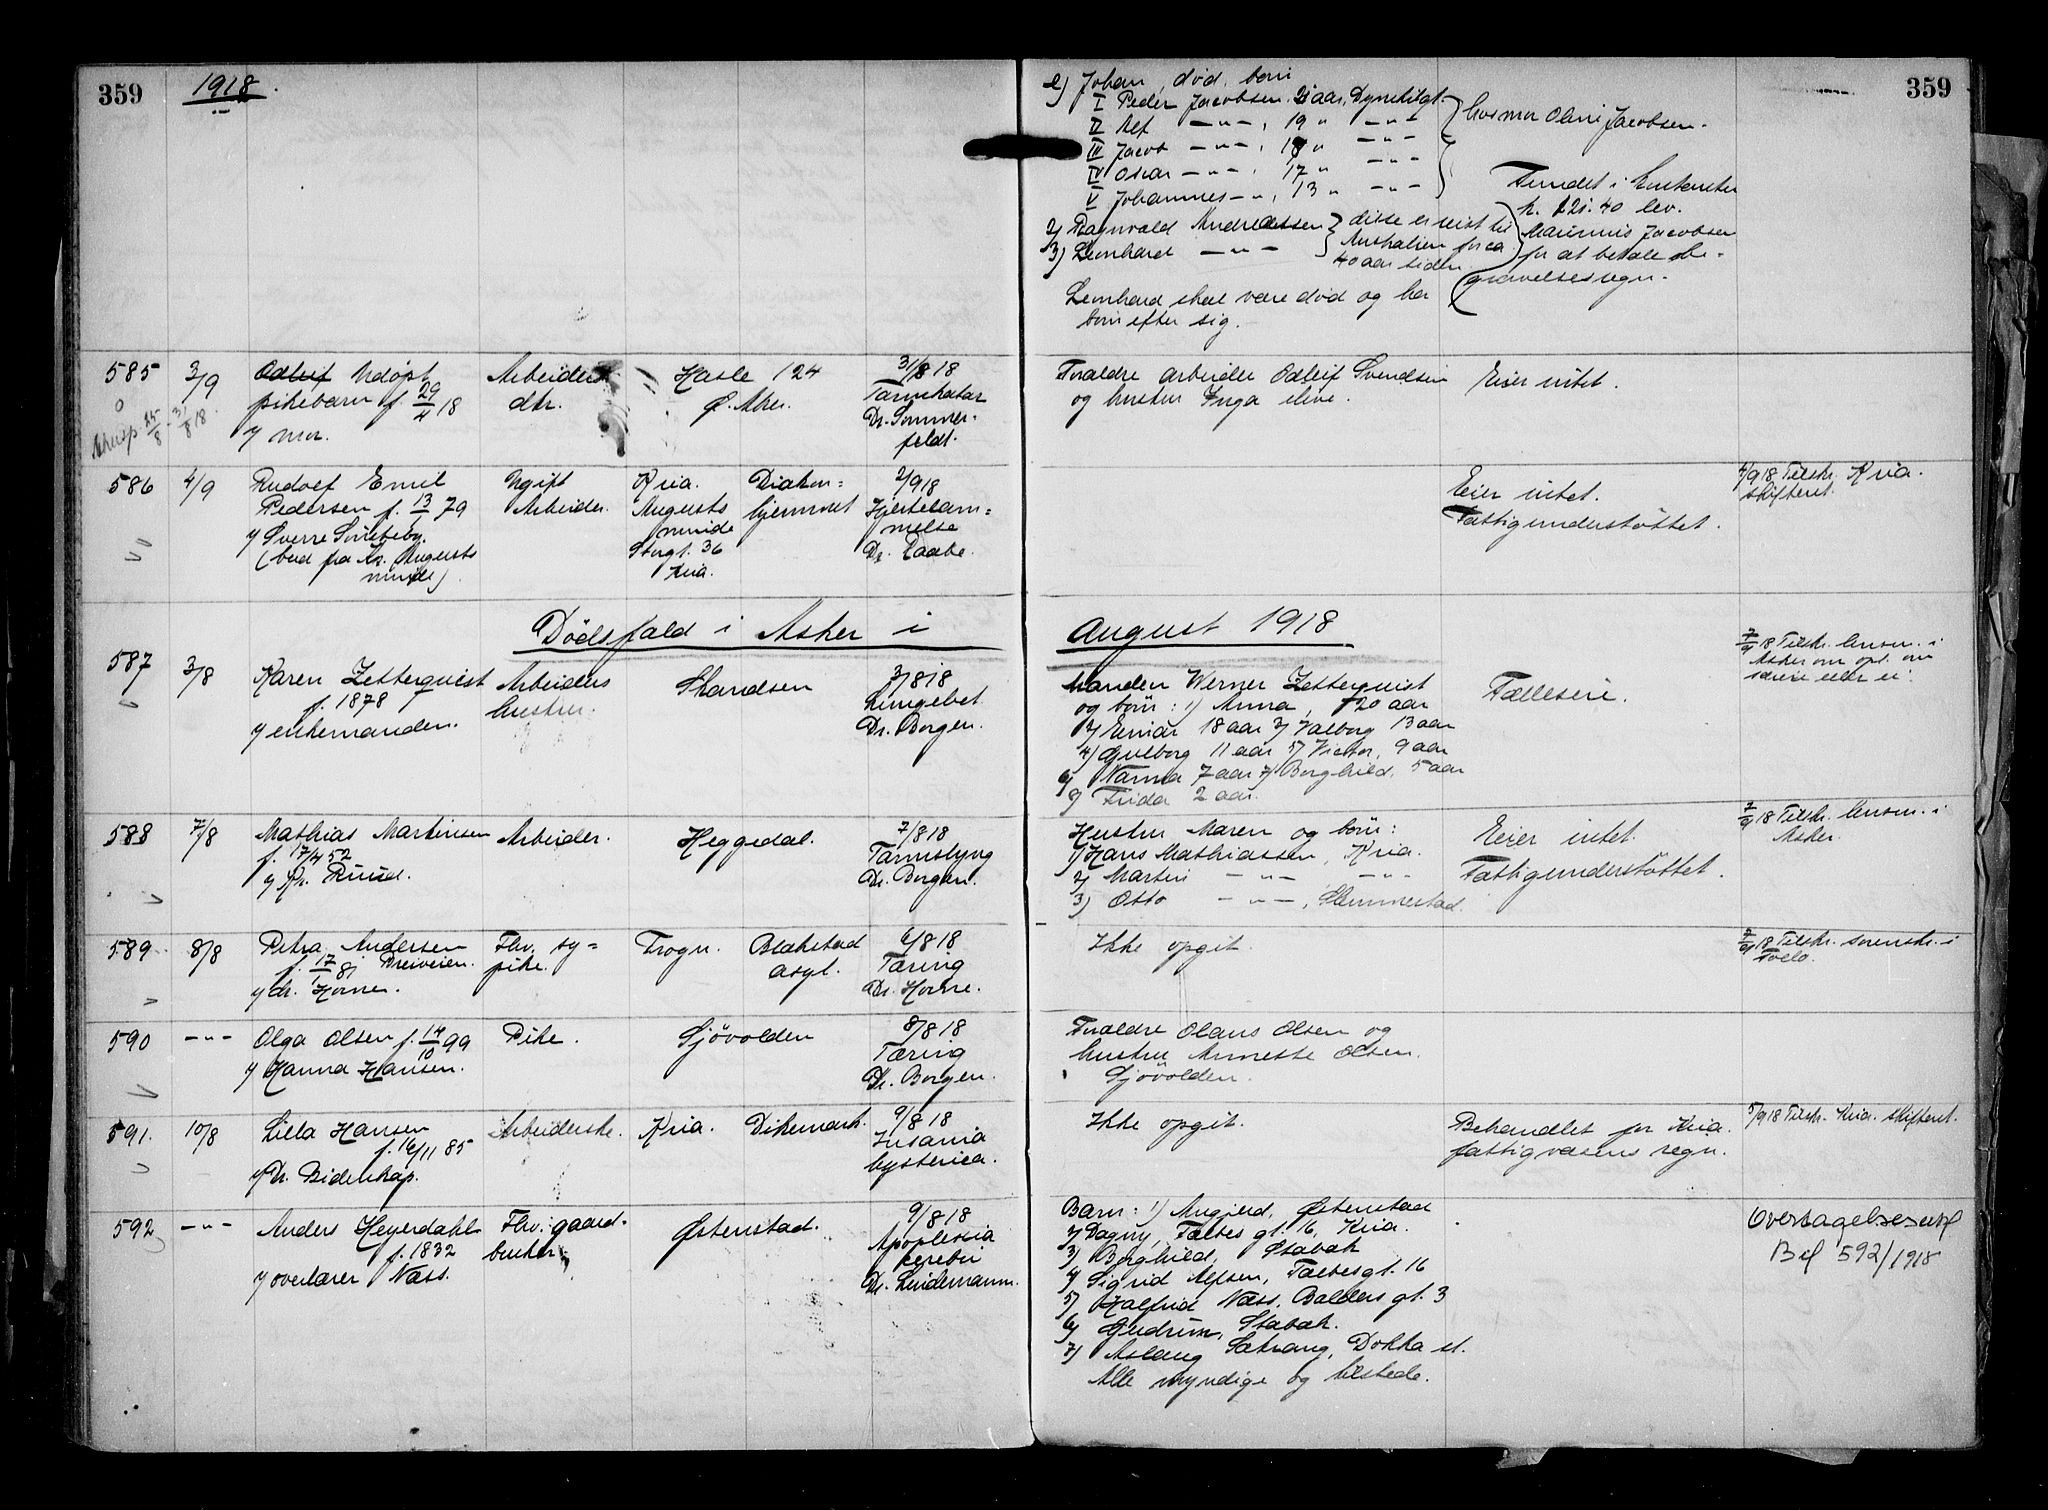 359
1918.
e) Johan, død, born
I Peder Jacobsen, 21 aar, Dynekilgt.
II Alf —"—, 19 " —"—
III Jacob —"—, 18 " —"—
IV Oscar —"—, 17 " —"—
V Johannes —"—, 13 " —"—
hos mor Oline Jacobsen.
359
2) Ragnvald Andreassen
3) Leonhard —"—
disse er reist til
Australien for ca
40 aar siden
Leonhard skal være død og ha
born efter sig.
Fundet i
k. 221.40 lev.
Jacobsen
for at betale be-
gravelsesregn.
585
3/9
Odleif Udöpt
pikebarn f. 29/4 18
v/ mor.
25/8 - 31/8 18.
Arbeiders
dtr.
Hasle 124
Ø. Aker.
31/8 18
Tarmkatar
Dr. Sommer-
feldt.
Foraldre arbeider Odleif Svendsen
og hustru Inga ilive.
Eier intet.
586
4/9
Rudolf Emil
Pedersen f. 13/1 79
v/ Sverre
(bud fra Augusts
minde)
Ugift
Arbeider.
Kria.
Augusts
minde
Storgt. 36
Kria.
Diakon=
hjemmet
2/9 18
Hjertelam=
melse
Dr. Raabe.
Eier intet.
Fattigunderstöttet.
4/9 18 Tilskr. Kria.
skifteret.
Dödsfald i Asker i August 1918
587
3/8
Karen Zetterquist
f. 1878
v/ enkemanden.
Arbeiders
hustru.
Skandsen
3/8 18
Lungebet.
Dr. Borgen.
Manden Werner Zetterquist
og born: 1) Anna, 20 aar
2) Einar 18 aar 3) Valborg 13 aar
4) Gulborg 11 aar 5) Victor, 9 aar
6) Nanna 7 aar 7) Borghild, 5 aar
8) Frida 2 aar.
Fælleseie.
7/9 18 Tilskr. lensm. i
Asker om opl. om
skifte eller ei.
588
7/8
Mathias Martinsen
f. 17/4 52
v/ Kr. Ruud.
Arbeider.
Heggedal.
7/8 18
Tarmslyng
Dr. Borgen.
Hustru Maren og born:
1) Hans Mathiassen, Kria.
2) Martin —"— —"—
3) Otto —"—, Slemmestad.
Eier intet.
Fattigunderstöttet.
7/9 18 Tilskr. lensm. i
Asker.
589
8/8
Petra Andersen
f. 17/1 81
v/ dr. Horne.
Fhv. sy=
pike.
Trogn.
Blakstad
asyl.
6/8 18
Tæring
Dr. Horne.
Ikke opgit.
7/9 18 Tilskr. sorenskr. i
Follo.
590
—"—
Olga Olsen f. 14/10 99
v/ Hanna Hansen.
Pike.
Sjövolden
8/8 18
Tæring
Dr. Borgen.
Foraldre Olaus Olsen og
hustru Annette Olsen.
Sjövolden.
591.
10/8
Lilla Hansen
f. 16/11 85
v/ Dr. Bidenkap.
Arbeiderske.
Kria.
Dikemark.
9/8 18
Insania
hysterica.
Ikke opgit.
Behandlet for Kria.
fattigvæsens regn.
5/9 18 Tilskr. Kria. skifteret.
592
—"—
Anders Heyerdahl
f. 1832
v/ overlærer Næss.
Fhv. gaard-
bruker
Østenstad.
9/8 18
Apoplexia
cerebri
Dr. Lindemann.
Barn: 1) Østenstad
2) Dagny, Faltes gt. 16, Kria.
3) Borghild, Stabæk
4) Sigrid Alfsen, Faltesgt. 16
5) Halfrid Næss, Balders gt. 3
6) Gudrun, Stabæk.
7) Aslaug Sætrang, Dokka st.
Alle myndige og tilstede.
Bef 592/1918